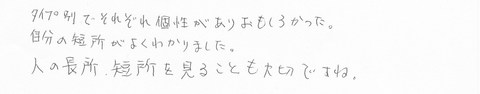 タイプ別でそれぞれ個性がありおもしろかった。
自分の短所がよくわかりました。
人の長所、短所を見ることも大切ですね。